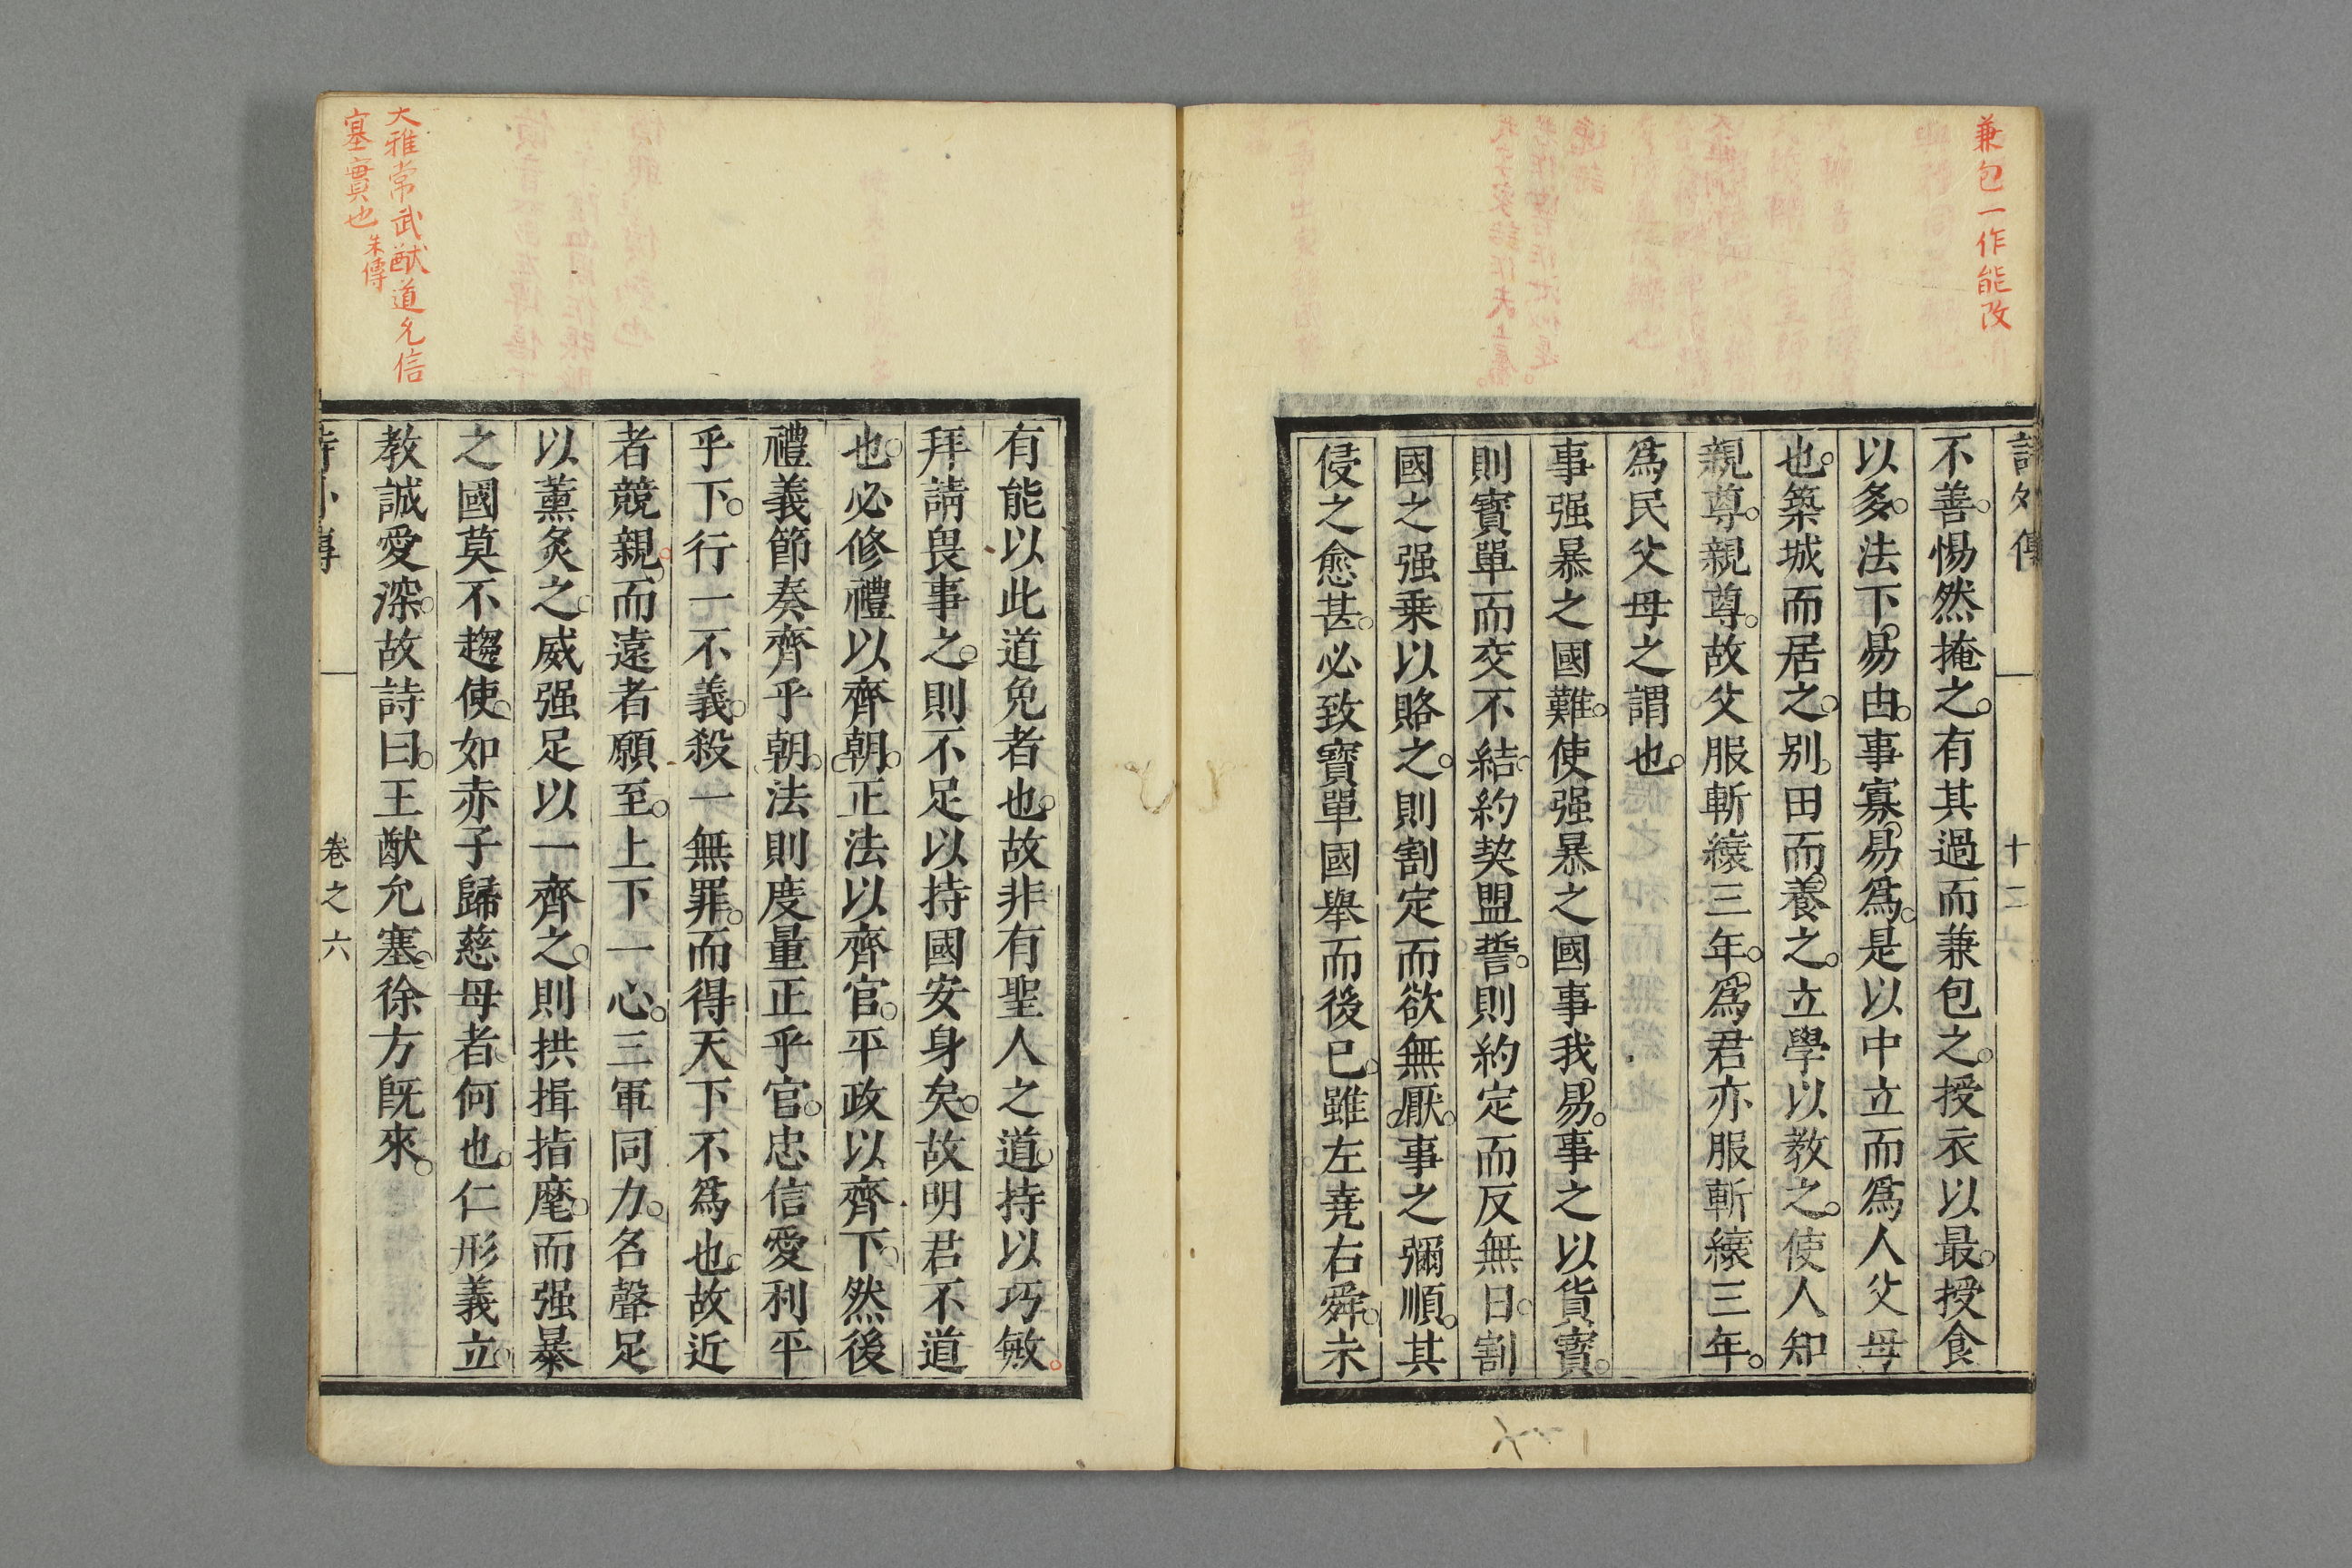 兼包一作能改
詩外傳
十二
不善惕然掩之有其過而兼包之授衣以最授食
以多法下易由事寡易爲是以中立而爲人父母
也築城而居之别田而養之立學以教之使人知
親尊親尊故父服斬縗三年爲君亦服斬縗三年
爲民父母之謂也
事强暴之國難使强暴之國事我易事之以貨寶
則寶單而交不結約契盟誓則約定而反無日割
國之强乗以賂之則割定而欲無厭事之彌順其
侵之愈甚必致寶單國舉而後已雖左堯右舜未
有能以此道免者也故非有聖人之道持以巧敏
拜請畏事之則不足以持國安身矣故明君不道
也必修禮以齊朝正法以齊官平政以齊下然後
禮義節奏齊乎朝法則度量正乎官忠信愛利平
乎下行一不義殺一無罪而得天下不爲也故近
者競親而遠者願至上下一心三軍同力名聲足
以薰炙之威强足以一齊之則拱揖指麾而强暴
之國莫不趨使如赤子歸慈母者何也仁形義立
教誠愛深故詩曰王猷允塞徐方旣來
大雅常武猷道允信
塞實也朱傳
詩外傳
卷之六